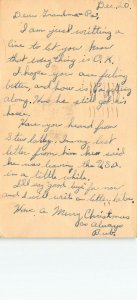 Dec. 20.
Dear Grandma & Pa,
I am just writting a
line to let you know
that everything is O.K.
I hope you are feeling
better, and how is Pa getting
along. Has he still got his
horse.
Have you heard from
lately. In my last
letter from him he said
he was leaving the U.S.A.
in a little while.
I'll say good bye for now
and I will write a letter, later.
Have a Merry Christmas
As Always
Bub.